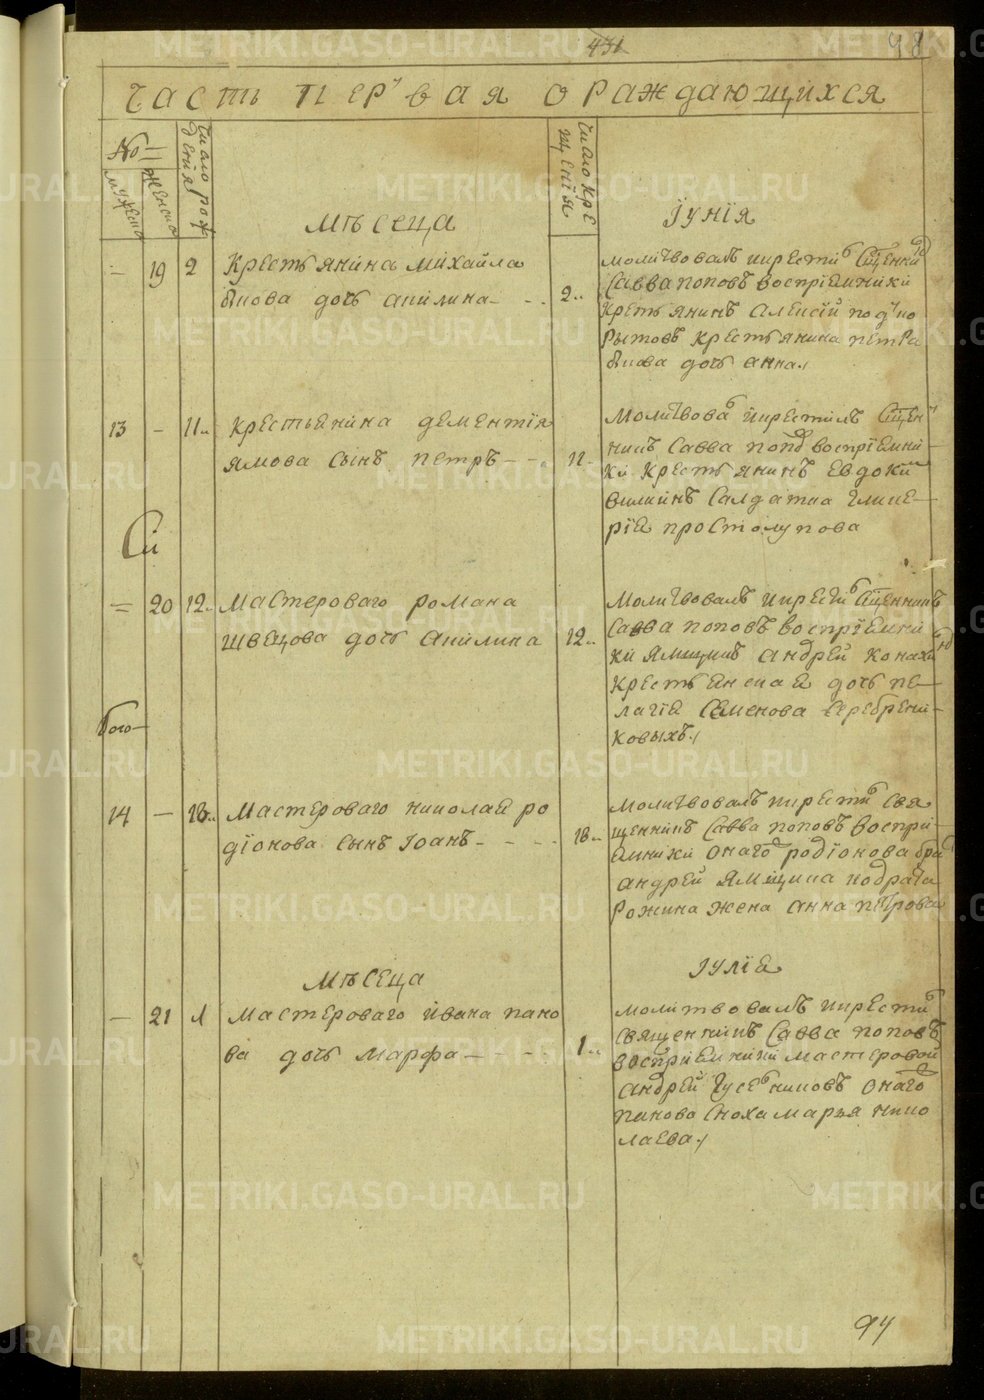 431
48
Часть Первая о раждающихся
No
мужеска
женска
число рождения
число крещенiя
Мѣсеца Iунiя
— 19 2 Крестьянина Михаила
дочь акилина - - - 2
молитвовалъ икрестилъ Сщенникъ
Савва поповъ восприемники
Крестьянинъ Алексiй
Крестьянина петра
дочь анна
13 - 11 Крестьенина дементiя
сынъ петръ - - - 11
Молитвовалъ икрестилъ Сщен
никъ Савва попов восприемни
ки крестьянинъ Евдоким
Салдатка
рiя простолупова
Си
= 20 12 Мастероваго романа
Швецова дочь акилина 12
Молитвовалъ икрестилъ Сщенникъ
Савва поповъ восприемни
ки андрей
крестьянская дочь пе
лагiя Семенова Серебрени
ковыхъ
14 - 18 Мастероваго николая ро
дiонова сынъ Iоанъ - - - - 18
Молитвовалъ икрестилъ свя
щенникъ Савва поповъ воспри
емники онаго родiонова братъ
андрей
жена анна петрова
Мѣсеца Iулiя
— 21 1 Мастероваго ивана пано
ва дочь марфа - - - - 1
молитвовалъ икрестилъ
священникъ Савва поповъ
восприемники мастеровой
андрей онаго
панова сноха марья нико
лаева
94
METRIKI.GASO-URAL.RU